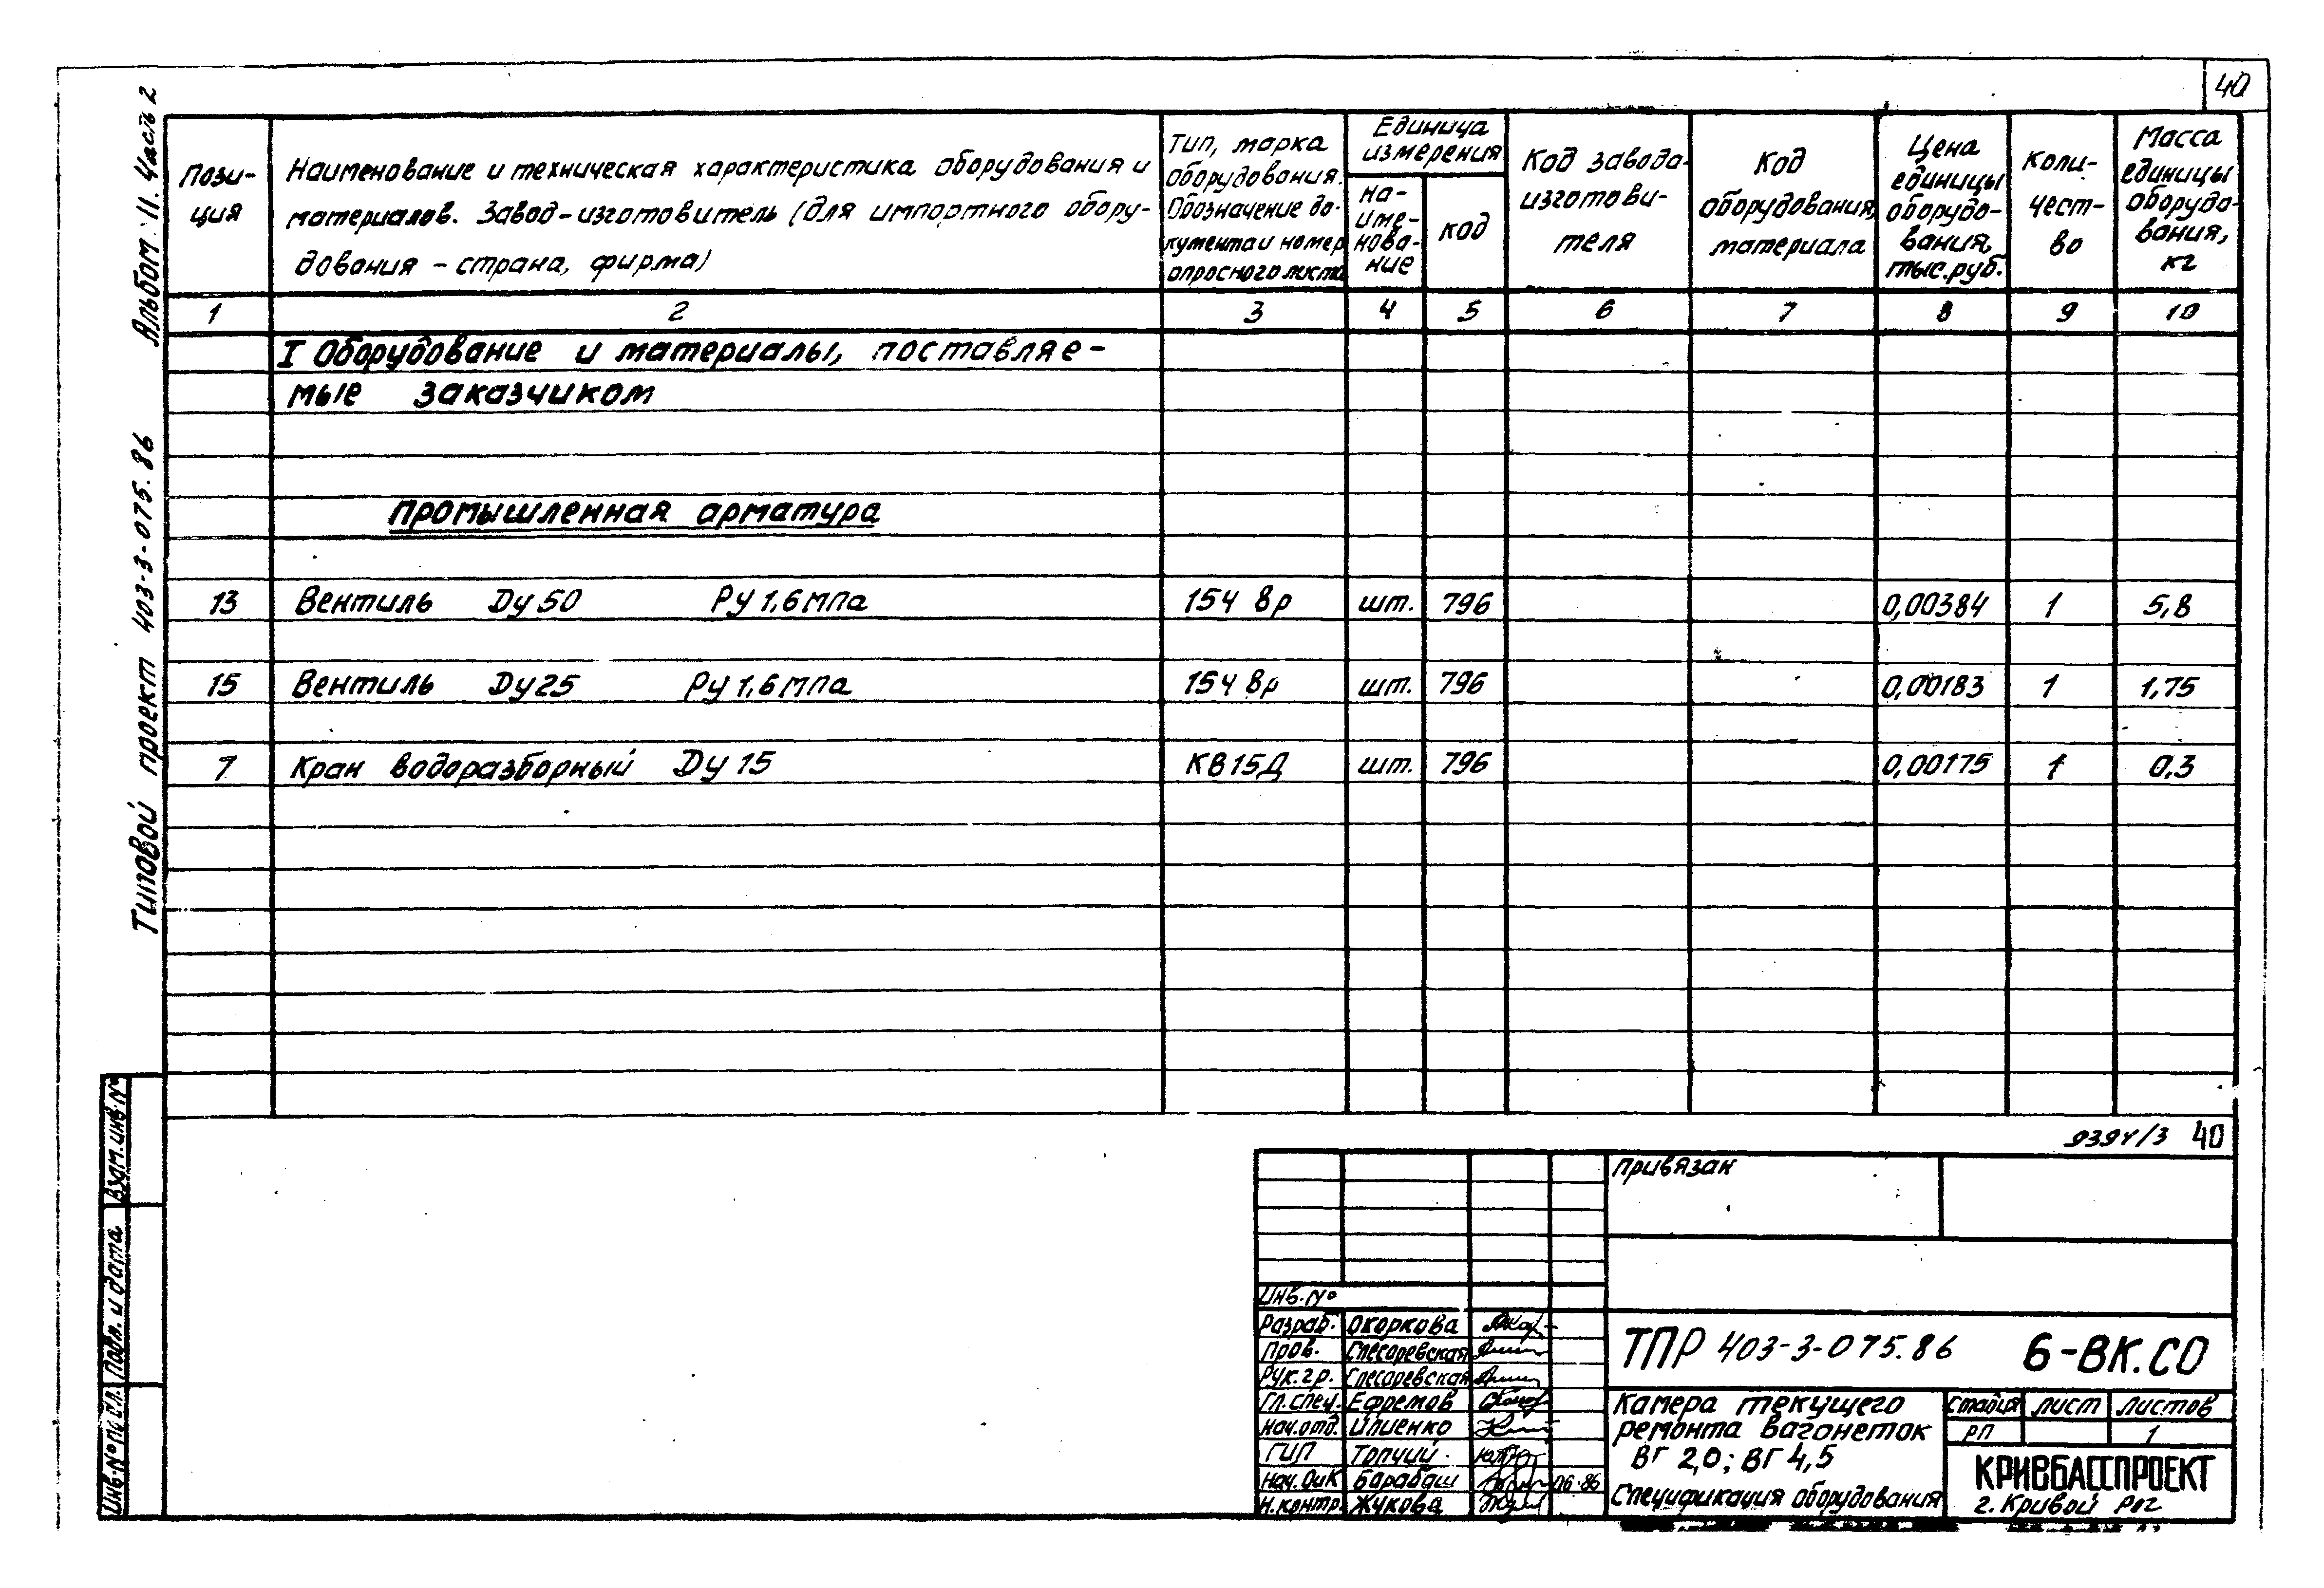 40
Альбом: 11. Часть 2
Типовой проект 403-3-075.86
Пози-
ция
Наименование и техническая характеристика оборудования и
материалов. Завод-изготовитель (для импортного обору-
дования - страна, фирма)
Тип, марка
оборудования.
Обозначение до-
кумента и номер
опросного листа
Единица
измерения
на-
име-
нова-
ние
код
Код завода-
изготови-
теля
Код
оборудования,
материала
Цена
единицы
оборудо-
вания,
тыс.руб.
Коли-
чест-
во
Масса
единицы
оборудо-
вания,
кг
1 2 3 4 5 6 7 8 9 10
I Оборудование и материалы, поставляе-
мые заказчиком
Промышленная арматура
13 Вентиль Dy 50 Ру 1,6 мпа 15ч 8р шт. 796 0,00384 1 5,8
15 Вентиль Dy 25 Ру 1,6 мпа 15ч 8р шт. 796 0,00183 1 1,75
7 Кран водоразборный Dy 15 КВ15Д шт. 796 0,00175 1 0,3
9394/3 40
Взам.инв.№
Подп. и дата
Инв.№ подл.
Привязан
Инв.№
Разраб. Окоркова
Пров. Слесаревская
Рук.гр. Слесаревская
Гл.спец. Ефремов
Нач.отд. Илиенко
ГИП Топчий
Нач.ОиК Барабаш 06.86
Н.контр. Жукова
ТПР 403-3-075.86 6-ВК.СО
Камера текущего
ремонта вагонеток
ВГ 2,0; ВГ 4,5
Спецификация оборудования
Стадия Лист Листов
РП 1
КРИВБАССПРОЕКТ
г. Кривой Рог